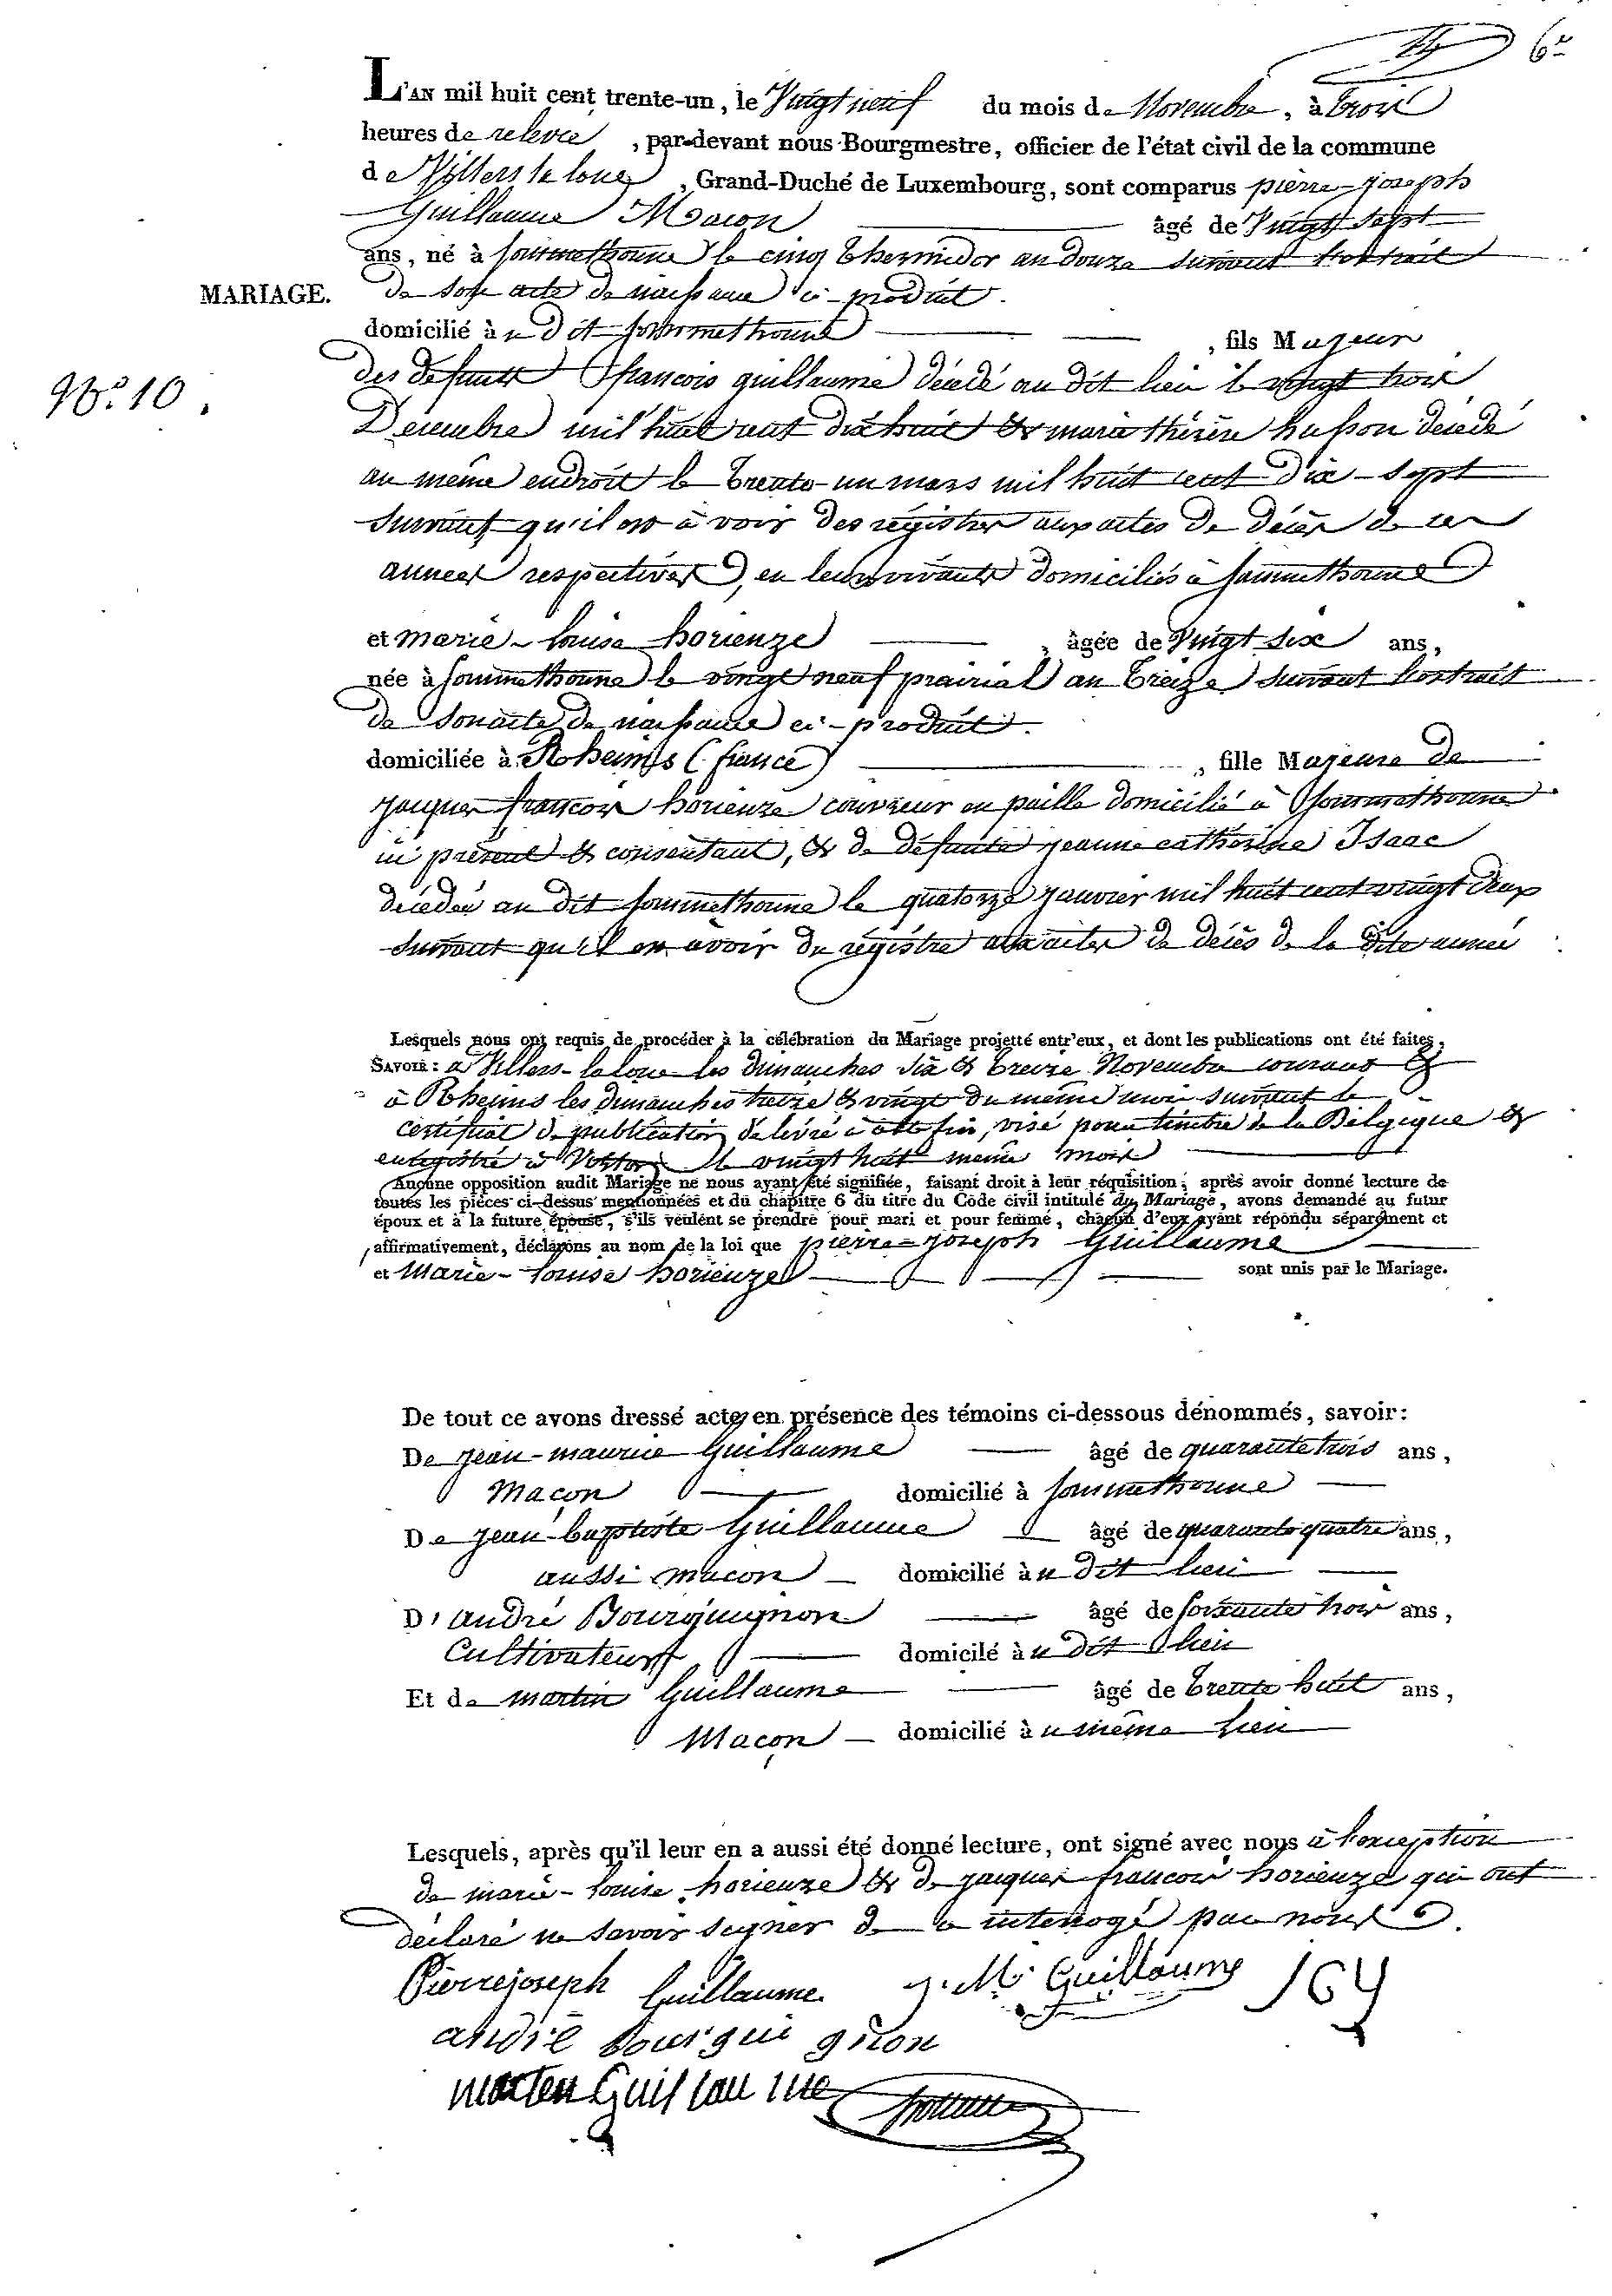 6e
L'AN mil huit cent trente-un, le Vingt neuf du mois de Novembre, à trois
heures de relevée, par-devant nous Bourgmestre, officier de l'état civil de la commune
de Villers la loue, Grand-Duché de Luxembourg, sont comparus pierre-joseph
Guillaume Macon âgé de Vingt sept
ans, né à Sommethonne le cinq thermidor an douze suivant l'extrait
MARIAGE. de son acte de naissance ci-produit.
domicilié à u dit Sommethonne, fils Majeur
No. 10.
des defunts francois guillaume décedé au dit lieu le vingt trois
Décembre mil huit cent dix huit & marie thérèse husson décedé
au même endroit le trente-un mars mil huit cent dix-sept
suivant qu'il est à voir des régistres aux actes de décès de ces
annees respectives, en leurs vivants domiciliés à Sommethonne
et marie-louise horienze, âgée de Vingt six ans,
née à Sommethonne le vingt neuf prairial an treize suivant l'extrait
de son acte de naissance ci-produit.
domiciliée à Rheims (france), fille Majeure de
jacques françois horienze couvreur en paille domicilié à Sommethonne
ici présent & consentant, & de défunte jeanne catherine Isaac
décedée au dit Sommethonne le quatorze janvier mil huit cent vingt deux
suivant qu'il est à voir du régistre aux actes de décès de la dite année
Lesquels nous ont requis de procéder à la célébration du Mariage projetté entr'eux, et dont les publications ont été faites,
SAVOIR: à Villers-la loue les dimanches six & treize Novembre courant &
à Rheims les dimanches treize & vingt du même mois suivant le
certificat de publication délivré à cette fin, visé pour timbre de la Belgique &
enregistré à Virton le vingt huit même mois
Aucune opposition audit Mariage ne nous ayant été signifiée, faisant droit à leur réquisition; après avoir donné lecture de
toutes les pièces ci-dessus mentionnées et du chapitre 6 du titre du Code civil intitulé du Mariage, avons demandé au futur
époux et à la future épouse, s'ils veulent se prendre pour mari et pour femme, chacun d'eux ayant répondu séparément et
affirmativement, déclarons au nom de la loi que pierre-joseph Guillaume
et Marie-louise horienze sont unis par le Mariage.
De tout ce avons dressé acte en présence des témoins ci-dessous dénommés, savoir:
De jean-maurice Guillaume âgé de quarante trois ans,
Maçon domicilié à Sommethonne
De jean-baptiste Guillaume âgé de quarante quatre ans,
aussi macon domicilié à u dit lieu
D'andré Bourguignon âgé de soixante trois ans,
Cultivateur domicilé à u dit lieu
Et de martin Guillaume âgé de trente huit ans,
Maçon domicilié à u même lieu
Lesquels, après qu'il leur en a aussi été donné lecture, ont signé avec nous à l'exception
de marie-louise horienze & de jacques francois horienze qui ont
déclaré ne savoir signer de ce interrogé par nous.
Pierrejoseph Guillaume. J. M. Guillaume JGY
andré bourgui gnon
marten Guillaume